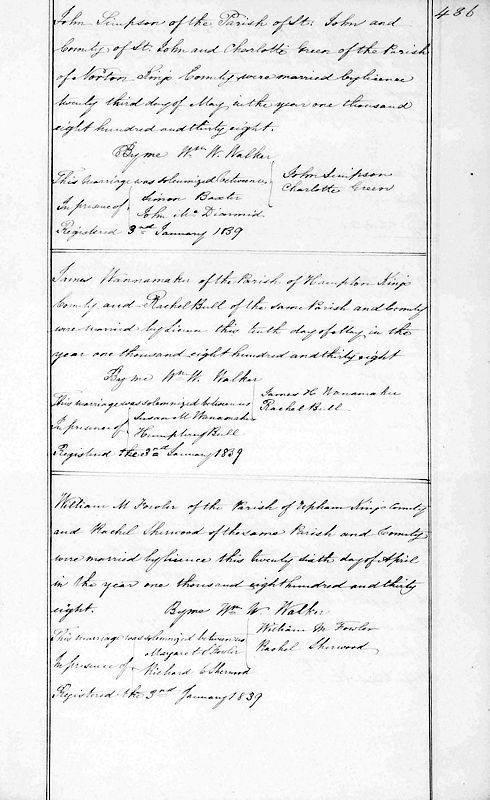 436
John Simpson of the Parish of St. John and
County of St. John and Charlotte Green of the Parish
of Norton Kings County were married by lisence
twenty third day of May in the year one thousand
eight hundred and thirty eight.
By me Wm. W. Walker
This marriage was solemnized between us John Simpson
Charlotte Green
In presence of Simon Baxter
John Mc Diarmid
Registered 3rd January 1839
James Wannamaker of the Parish of Hampton Kings
County and Rachel Bull of the same Parish and County
were married by lisence this tenth day of May in the
year one thousand eight hundred and thirty eight
By me Wm W. Walker
This marriage was solemnized between us James H Wanamake
Rachel Bull
In presence of Susan M Wanamake
Humphrey Bull
Registered the 3rd January 1839
William M Fowler of the Parish of Upham Kings County
and Rachel Sherwood of the same Parish and County
were married by lisence this twenty sixth day of April
in the year one thousand eight hundred and thirty
eight. By me Wm W. Walker
This marriage was solemnized between us William M. Fowler
Rachel Sherwood
In presence of Margaret S Fowler
Richard C Sherwood
Registered the 3rd January 1839